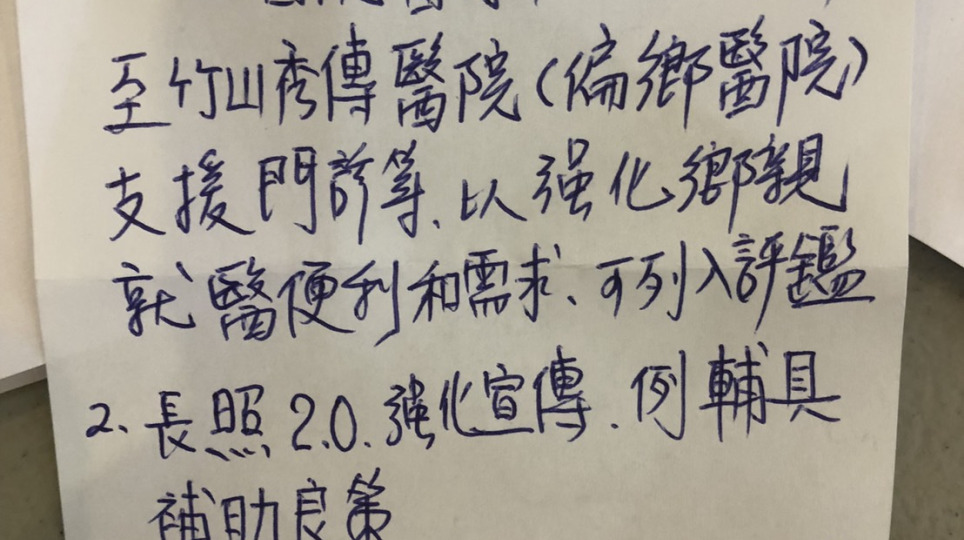 至竹山秀傳醫院(偏鄉醫院)
支援門診等、以强化鄉親
就醫便利和需求、可列入評鑑
2、長照2.0、强化宣傳、例輔具
補助良策